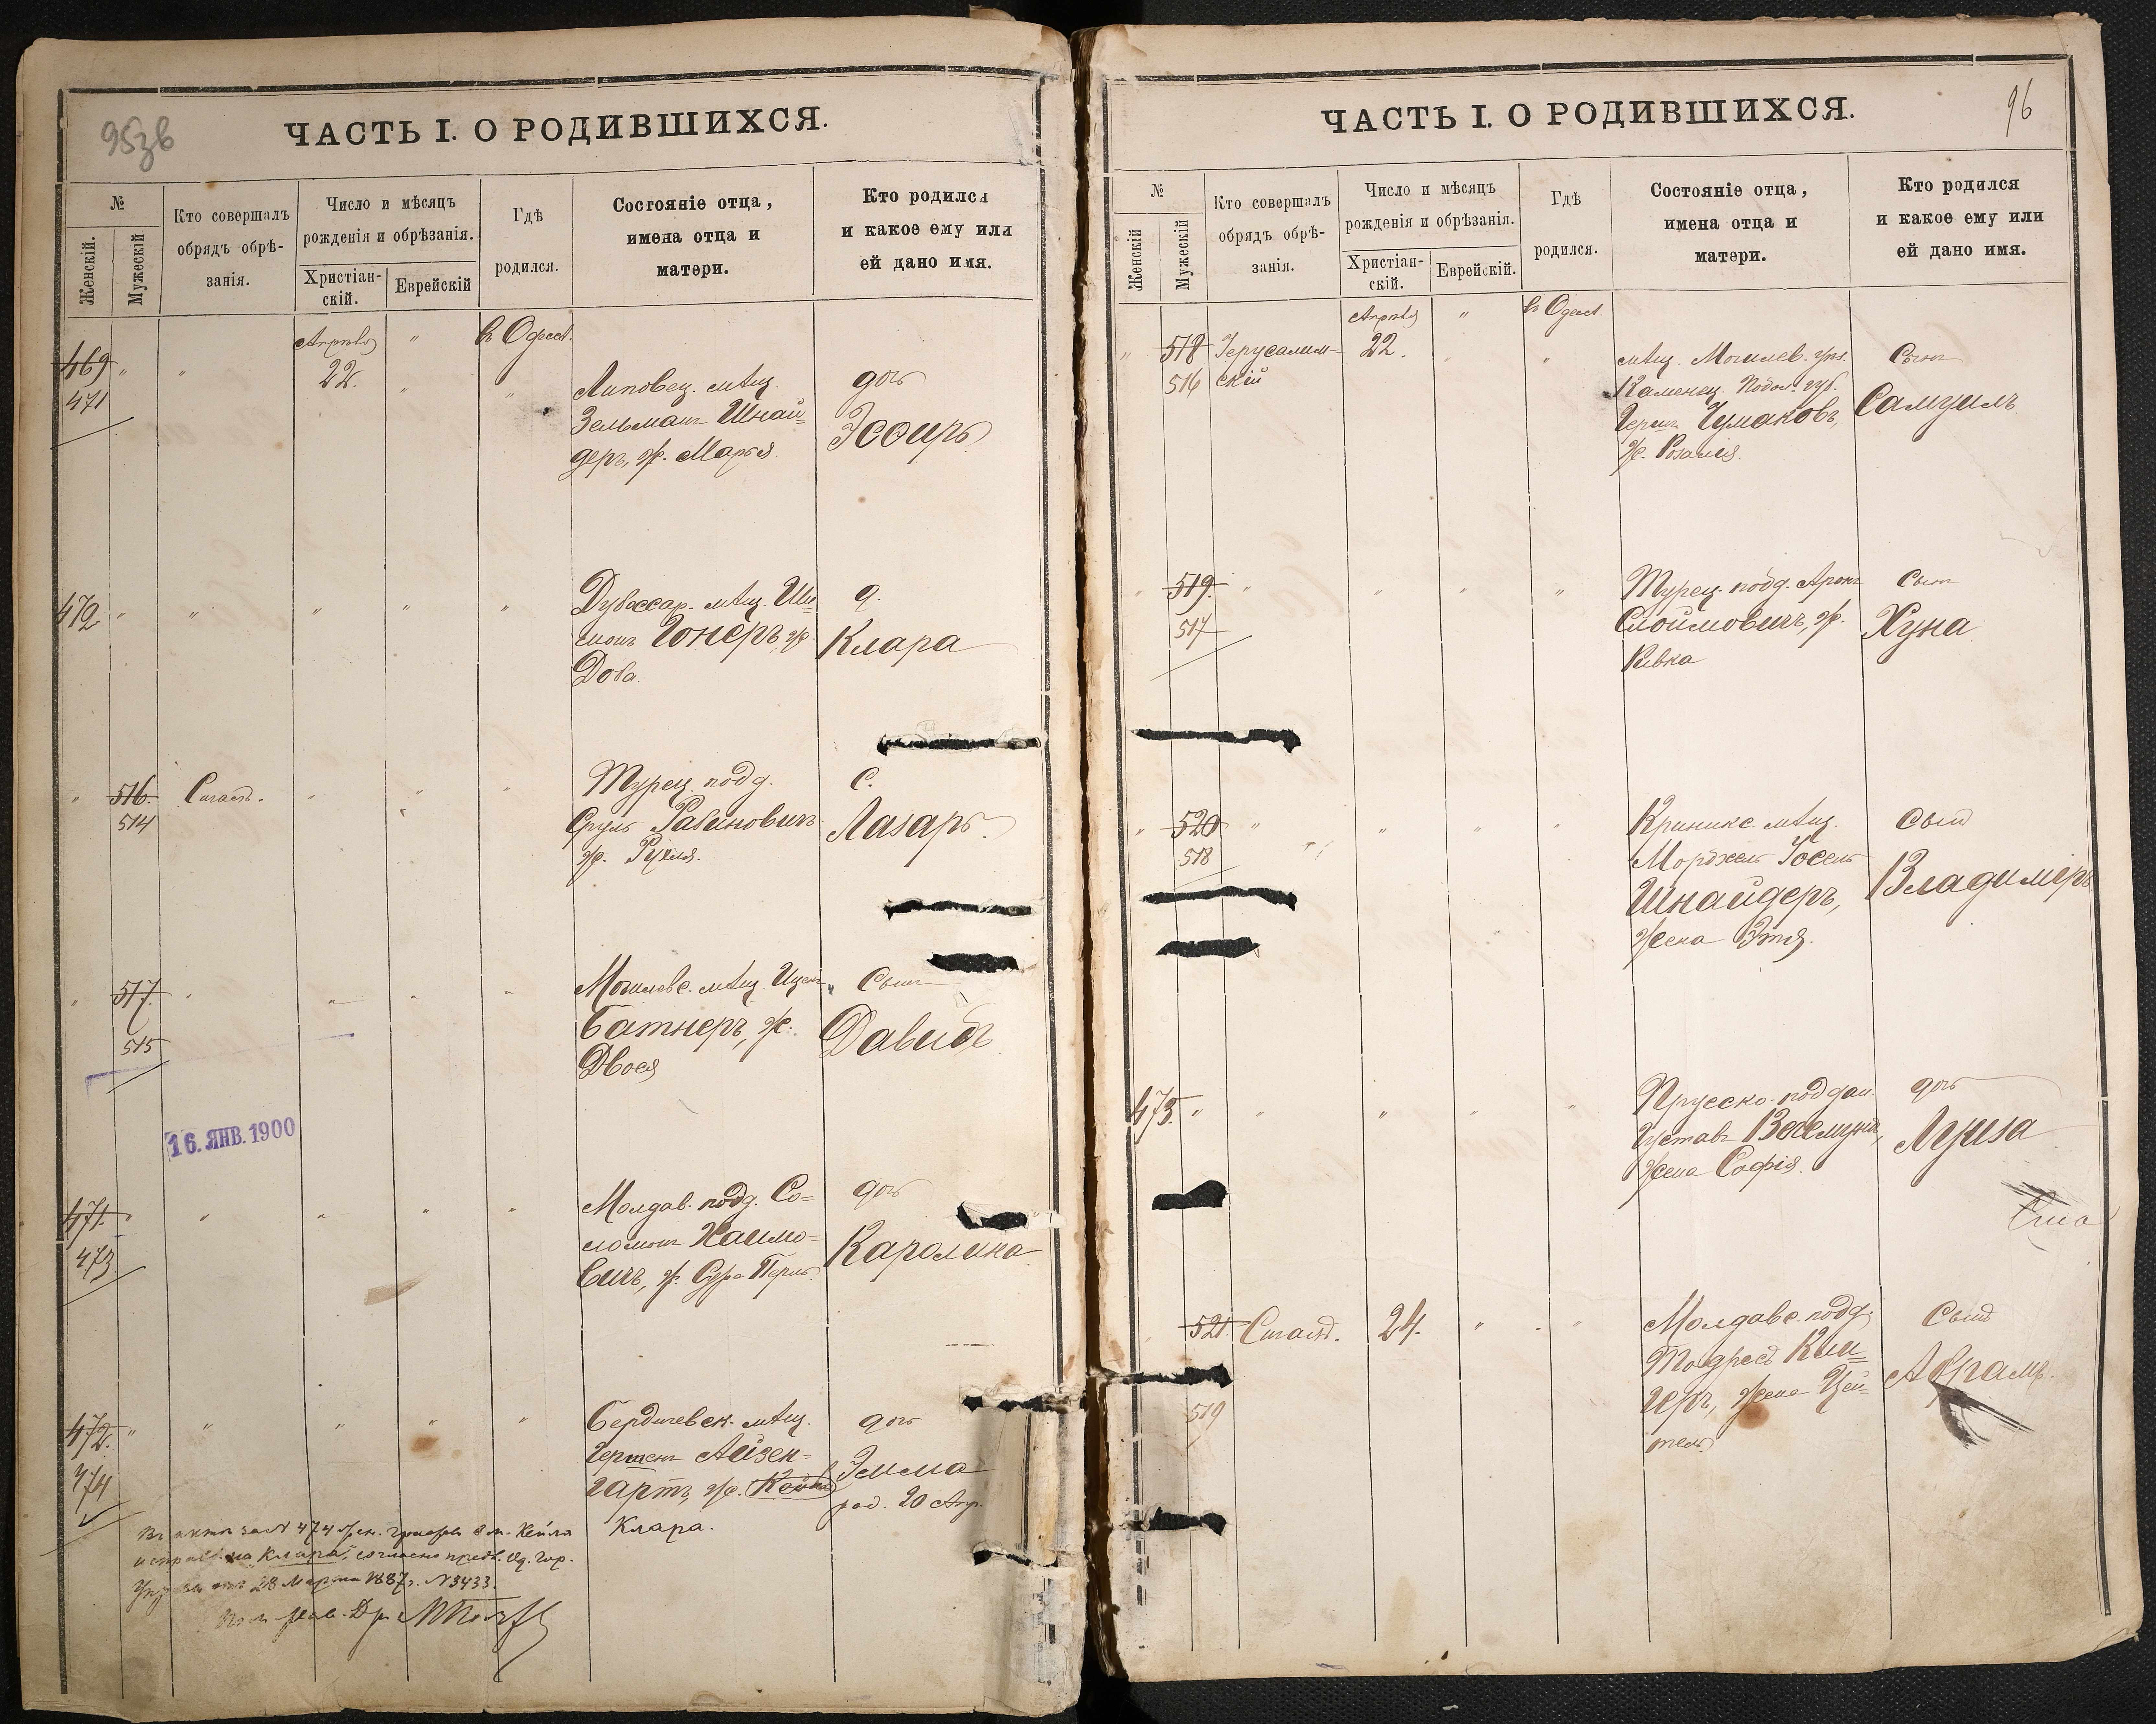 95зв
ЧАСТЬ I. О РОДИВШИХСЯ.
№
Женскій.
Мужескій
Кто совершалъ
обрядъ обрѣ-
занія.
Число и мѣсяцъ
рожденія и обрѣзанія.
Христіан-
скій.
Еврейскій
Гдѣ
родился.
Состояніе отца,
имена отца и
матери.
Кто родился
и какое ему или
ей дано имя.
469 " " Апрѣля " въ Одессѣ.
471
22. " "
Липовец. мѣщ.
Зельманъ Шнай=
деръ, ж. Марья.
дочь
Эсѳирь
472 " " " " "
Дубоссар. мѣщ. Ши=
монъ Гонеръ, ж.
Дова.
д.
Клара
" 516. Сигалъ. " " "
514
Турец. подд.
Сруль Рабиновичъ
ж. Рухля.
С.
Лазарь.
" 517. " " " "
515
Могилевс. мѣщ. Ицекъ
Батнеръ, ж.
Двося
Сынъ
Давидъ
16. ЯНВ. 1900
471. " " " " "
473
Молдав. подд. Со=
ломонъ Хаимо=
вичъ, ж. Сура Перль.
дочь
Каролина
472. " " " " "
474
Бердичевск. мѣщ.
Гершенъ Айзен=
гартъ, ж. Кейла
Клара.
дочь
Эмма
род. 20 Апр.
Въ актѣ за № 474 жен.
исправлено "Клара", согласно предп. Од. Гор.
28 Марта 1887 г. № 3433.
96
ЧАСТЬ I. О РОДИВШИХСЯ.
№
Женскій
Мужескій
Кто совершалъ
обрядъ обрѣ-
занія.
Число и мѣсяцъ
рожденія и обрѣзанія.
Христіан-
скій.
Еврейскій.
Гдѣ
родился.
Состояніе отца,
имена отца и
матери.
Кто родился
и какое ему или
ей дано имя.
Апрѣля " въ Одессѣ.
" 518 Іерусалим= 22. " "
516 скій
мѣщ. Могилев. уѣз.
Каменец. Подол. губ.
Герш Чумаковъ,
ж. Розалія.
Сынъ
Самуилъ
" 519. " " " "
517
Турец. подд. Аронъ
Слоймовичъ, ж.
Ривка
Сынъ
Хуна
" 520 " " " "
518
Криникс. мѣщ.
Мордхель Іосель
Шнайдеръ,
жена Этя.
Сынъ
Владиміръ
473. " " " " "
Прусско-поддан.
Густавъ Векемундъ,
жена Софія.
дочь
Луиза
521. Сигалъ. 24. " "
519
Молдавс. подд.
Тодресъ Кли=
геръ, жена Цей=
тель
Сынъ
Абрамъ.